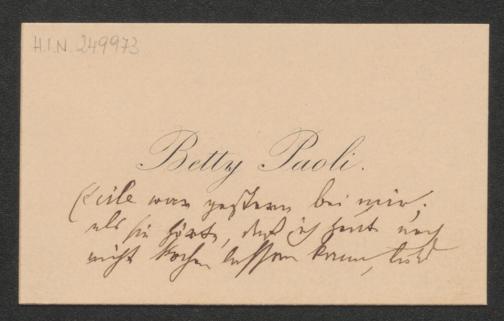 H.I.N. 249973
Betty Paoli.
Cécile war gestern bei mir.
als sie hörte, daß ich heute noch
nicht kochen lassen kann,